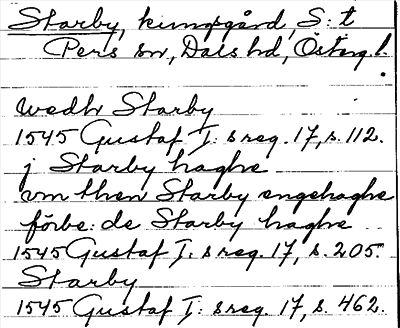 Starby, kungsgård, S:t
Pers sn, Dals hd, Österg.l.
wedh Starby
1545 Gustaf I: s reg. 17, s. 112.
j Starby haghe
vm then Starby engehaghe
förbe: de Starby haghe
1545 Gustaf I: s reg. 17, s. 205.
Starby
1545 Gustaf I: s reg. 17, s. 462.